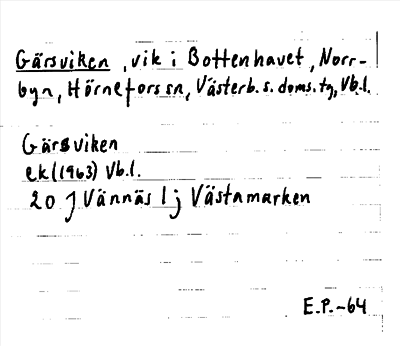 Gärsviken, vik i Bottenhavet, Norr-
byn, Hörnefors sn, Västerb. s. doms. tg, Vb.l.
Gärsviken
ek (1963) Vb.l.
20 J Vännäs l j Västamarken
E.P.-64